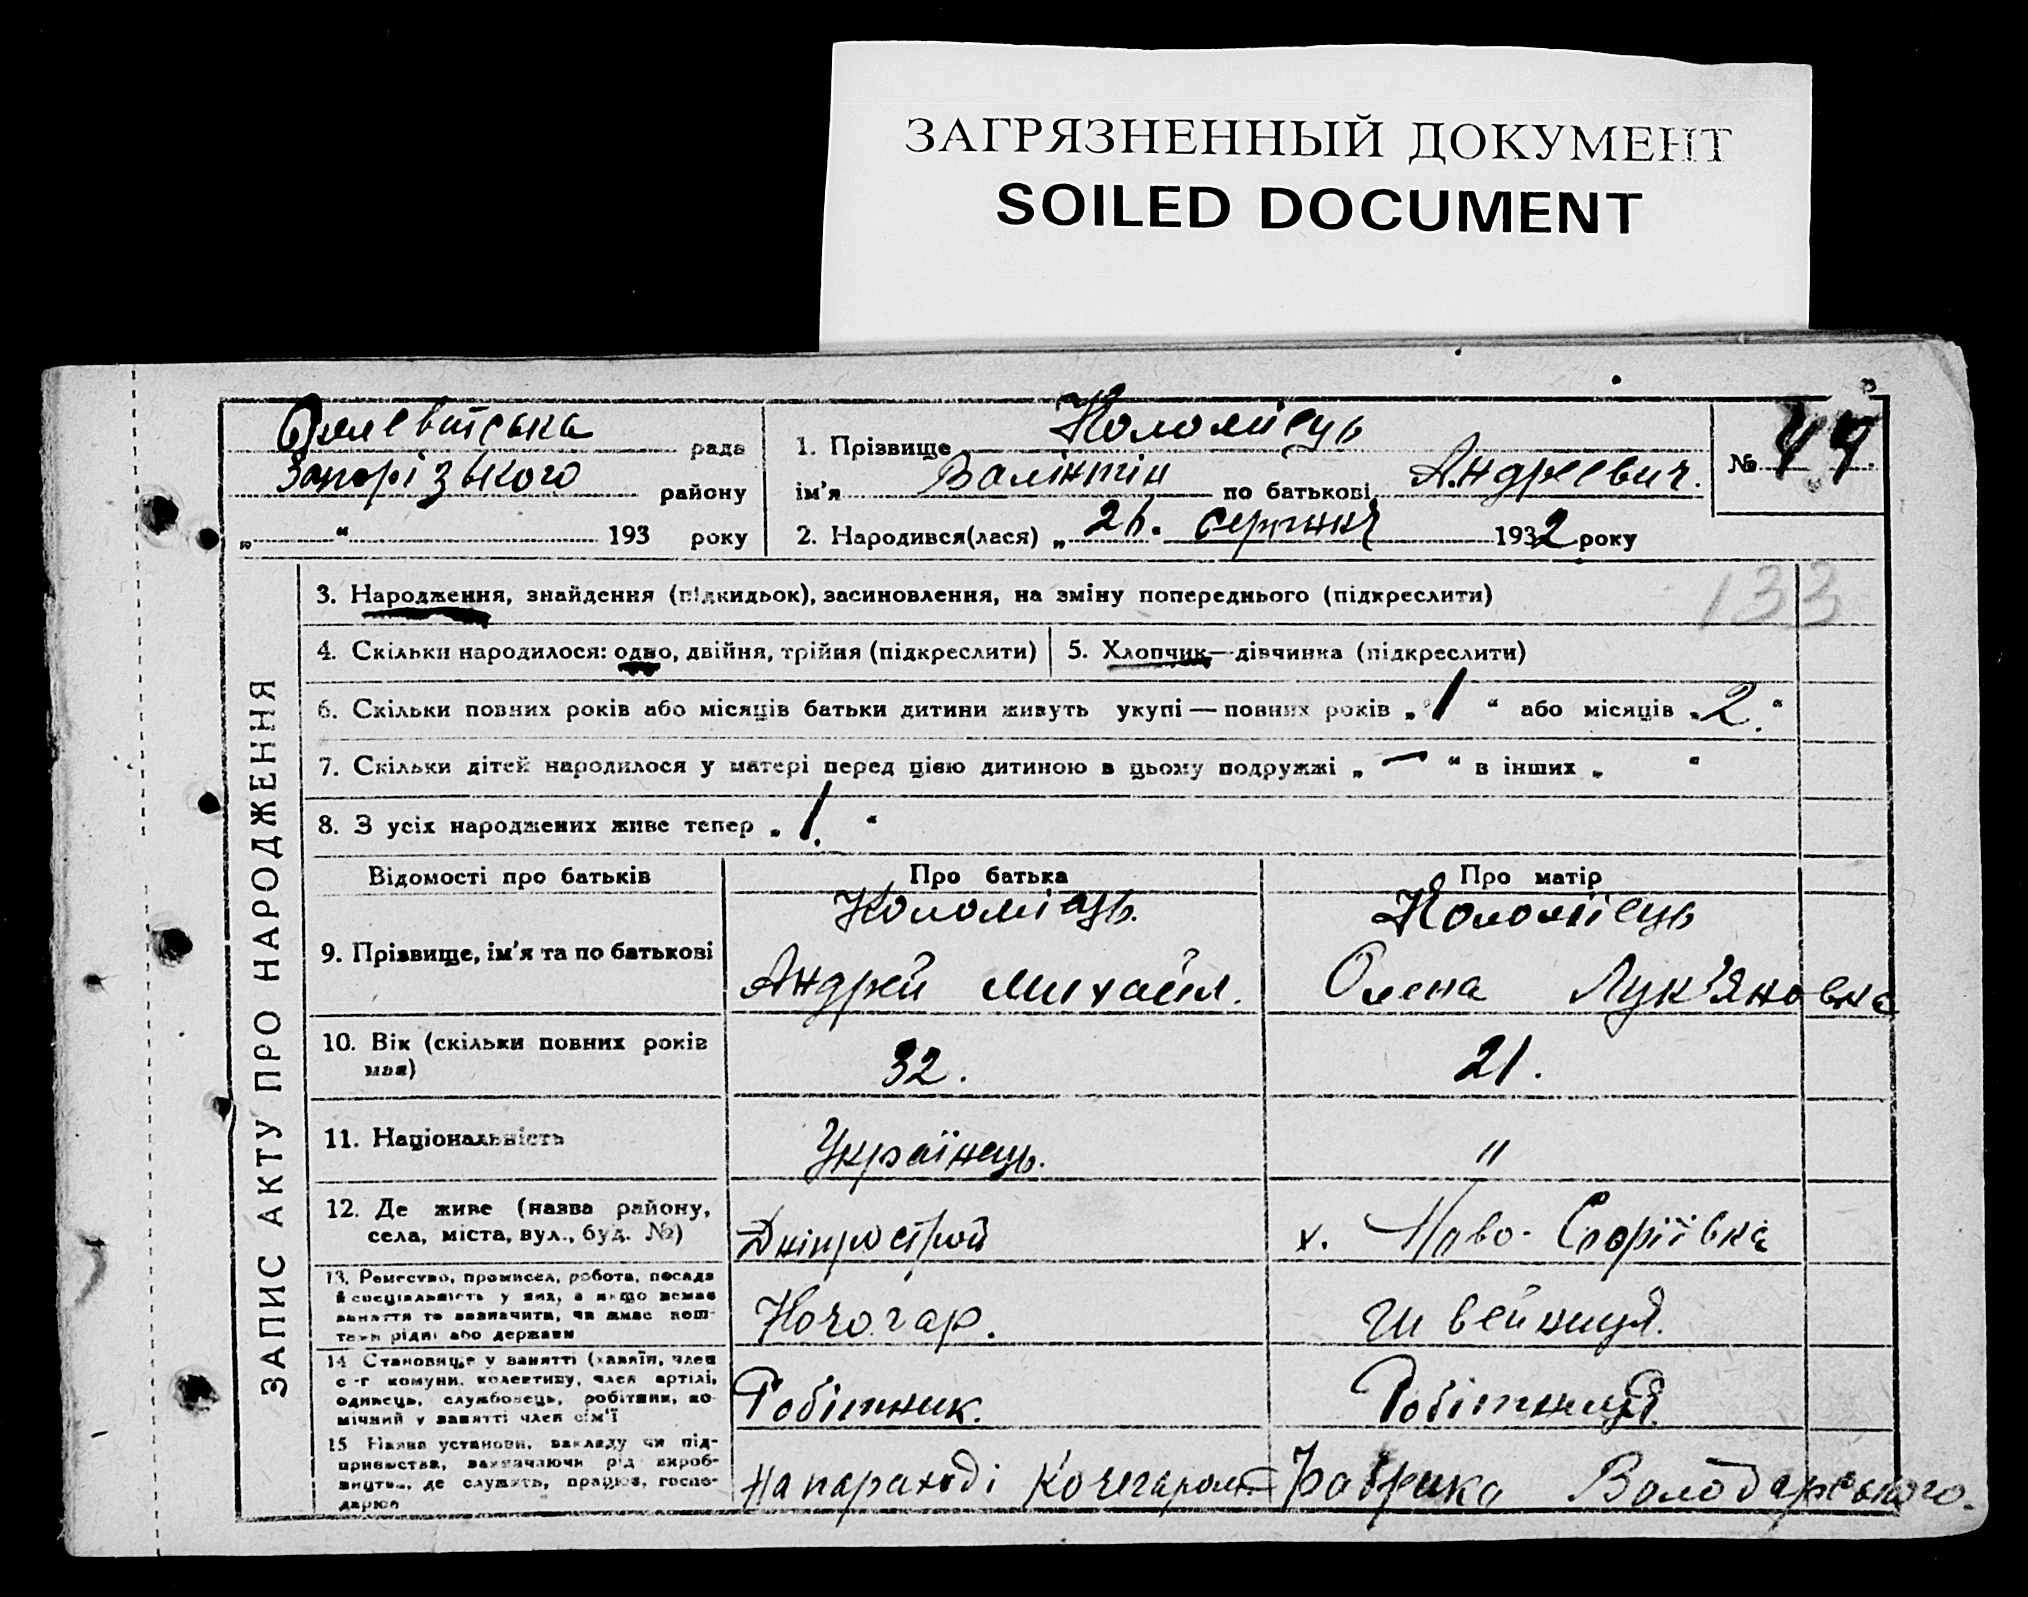 ЗАГРЯЗНЕННЫЙ ДОКУМЕНТ
SOILED DOCUMENT
рада
Запорізького району
„ “ 193 року
1. Прізвище Коломієць
ім’я Валінтін по батькові Андреевич.
№ 44
2. Народився(лася) „ 26. серпня 1932 року
133
ЗАПИС АКТУ ПРО НАРОДЖЕННЯ
3. Народження, знайдення (підкидьок), засиновлення, на зміну попереднього (підкреслити)
4. Скільки народилося: одно, двійня, трійня (підкреслити)
5. Хлопчик—дівчинка (підкреслити)
6. Скільки повних років або місяців батьки дитини живуть укупі — повних років „ 1 “ або місяців „ 2. “
7. Скільки дітей народилося у матері перед цією дитиною в цьому подружжі „ — “ в інших „ “
8. З усіх народжених живе тепер „ 1. “
Відомості про батьків
Про батька
Про матір
9. Прізвище, ім’я та по батькові
Коломієць.
Андрей Михайл.
Коломієць
Олена Лук’яновна
10. Вік (скільки повних років
має)
32.
21.
11. Національність
Українець.
"
12. Де живе (назва району,
села, міста, вул., буд. №)
Дніпрострой
х. Ново-
13. Ремество, промисел, робота, посада
й спеціальність у них, а якщо немає
заняття то зазначити, чи живе кош-
тами рідні або держави
Кочогар.
Швейниця.
14 Становище у занятті (хазяїн, член
с.-г комуни, колективу, член артілі,
одинець, службовець, робітник, по-
мічний у занятті член сім’ї
Робітник.
Робітниця.
15 Назва установи, закладу чи під-
приємства, зазначаючи рід вироб-
ництва, де служить, працює, госпо-
дарює
На пароході Кочегаром
Фабрика Володарського.